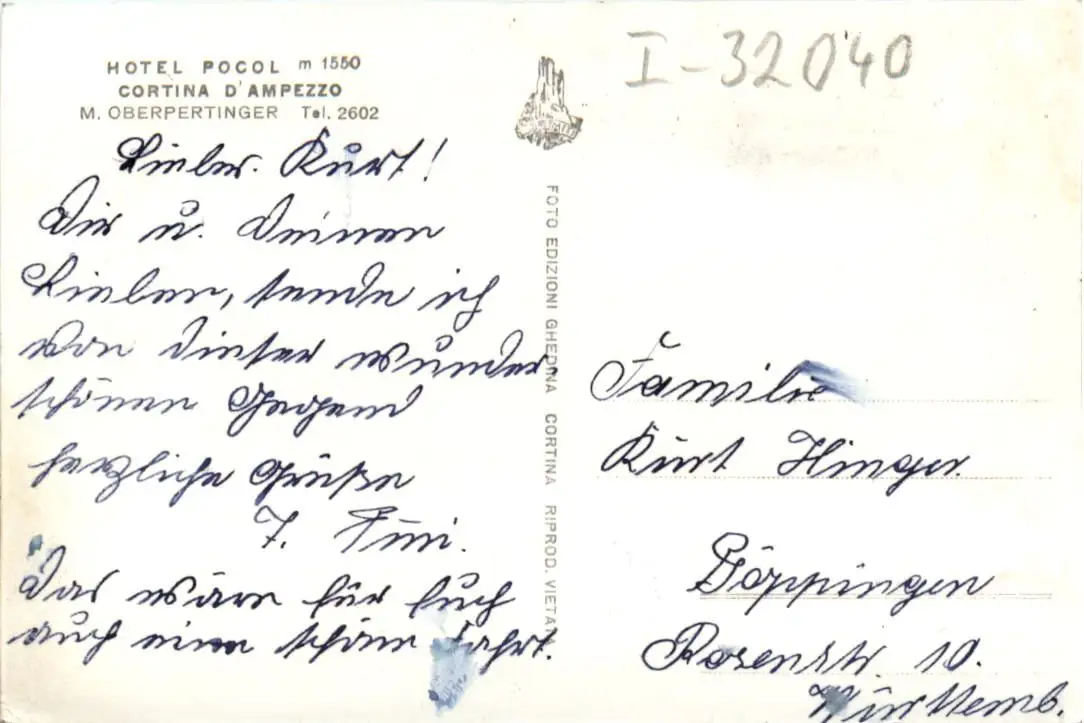 I-32040
HOTEL POCOL m 1550
CORTINA D'AMPEZZO
M. OBERPERTINGER Tel. 2602
Lieber Kurt!
Dir u. Deinen
Lieben, sende ich
von dieser wunder-
schönen Gegend
herzliche Grüße
Das wäre für Euch
auch eine schöne Fahrt.
FOTO EDIZIONI GHEDINA CORTINA RIPROD. VIETATA
Familie
Kurt Hinger
Göppingen
Rosenstr. 10.
Württemb.